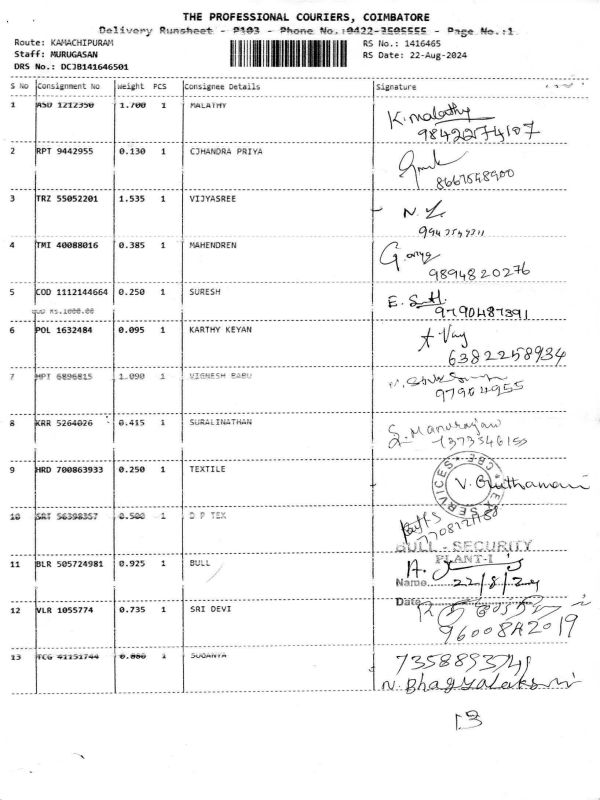 THE PROFESSIONAL COURIERS, COIMBATORE
Delivery Runsheet - P103 - Phone No.:0422-3505555 - Page No.:1
Route: KAMACHIPURAM
RS No.: 1416465
Staff: MURUGASAN
RS Date: 22-Aug-2024
DRS No.: DCJB141646501
S No Consignment No Weight PCS Consignee Details Signature
1 ASD 1212350 1.700 1 MALATHY K. Malathy
9842274107
2 RPT 9442955 0.130 1 CJHANDRA PRIYA
8667848900
3 TRZ 55052201 1.535 1 VIJYASREE
4 TMI 40088016 0.385 1 MAHENDREN
9894820276
5 COD 1112144664 0.250 1 SURESH
COD Rs.1000.00
9790487391
6 POL 1632484 0.095 1 KARTHY KEYAN
6382258934
7 MPT 6896815 1.090 1 VIGNESH BABU
8 KRR 5264026 0.415 1 SURALINATHAN
9 HRD 700863933 0.250 1 TEXTILE
SERVICES * CBE *
10 SRT 56398357 0.500 1 D P TEX
BULL - SECURITY
PLANT-I
11 BLR 505724981 0.925 1 BULL
Name 22/8/24
Date
12 VLR 1055774 0.735 1 SRI DEVI
13 TCG 41151744 0.080 1 SUGANYA
N. Bhagyalakshmi
13